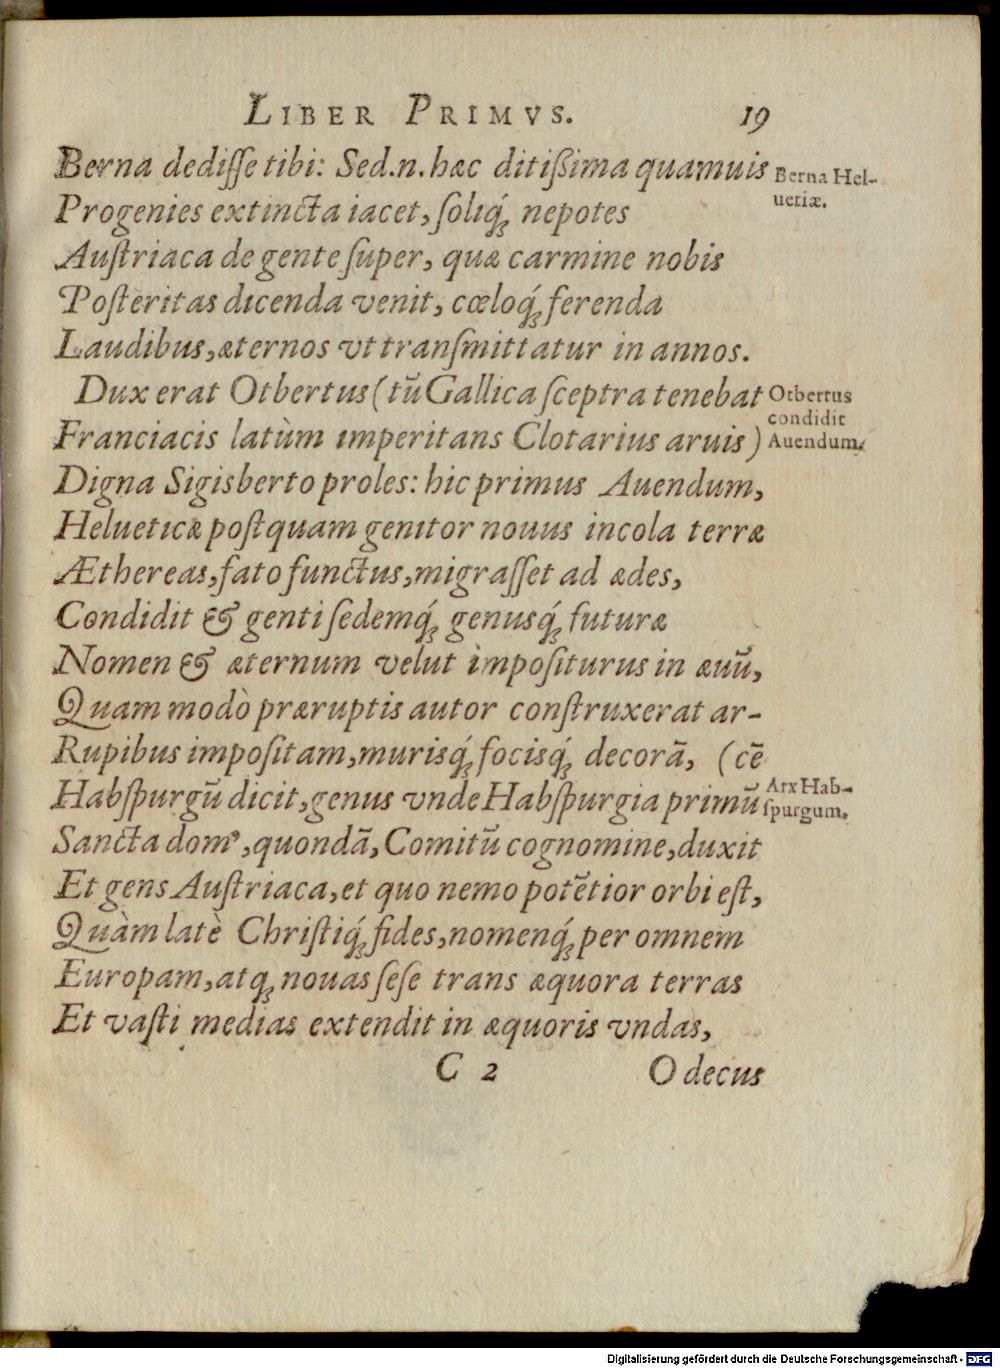 LIBER PRIMVS. 19
Berna dediſſe tibi: Sed.n.hæc ditiſsima quamuis
Berna Hel-
uetiæ.
Progenies extincta iacet, ſoliq́; nepotes
Auſtriaca de gente ſuper, quæ carmine nobis
Poſteritas dicenda venit, cœloq́; ferenda
Laudibus, æternos vt tranſmittatur in annos.
Dux erat Otbertus (tũ Gallica ſceptra tenebat
Otbertus
condidit
Auendum.
Franciacis latùm imperitans Clotarius aruis)
Digna Sigisberto proles: hic primus Auendum,
Helueticæ poſtquam genitor nouus incola terræ
Æthereas, fato functus, migraſſet ad ædes,
Condidit & genti ſedemq́; genusq́; futuræ
Nomen & æternum velut impoſiturus in æuũ,
Quam modò præruptis autor conſtruxerat ar-
Rupibus impoſitam, murisq́; focisq́; decorã, (cẽ
Habſpurgũ dicit, genus vnde Habſpurgia primũ
Arx Hab-
ſpurgum.
Sancta domꝰ, quondã, Comitũ cognomine, duxit
Et gens Auſtriaca, et quo nemo potẽtior orbi eſt,
Quàm latè Chriſtiq́; fides, nomenq́; per omnem
Europam, atq; nouas ſeſe trans æquora terras
Et vaſti medias extendit in æquoris vndas,
C 2 O decus
Digitalisierung gefördert durch die Deutsche Forschungsgemeinschaft - DFG